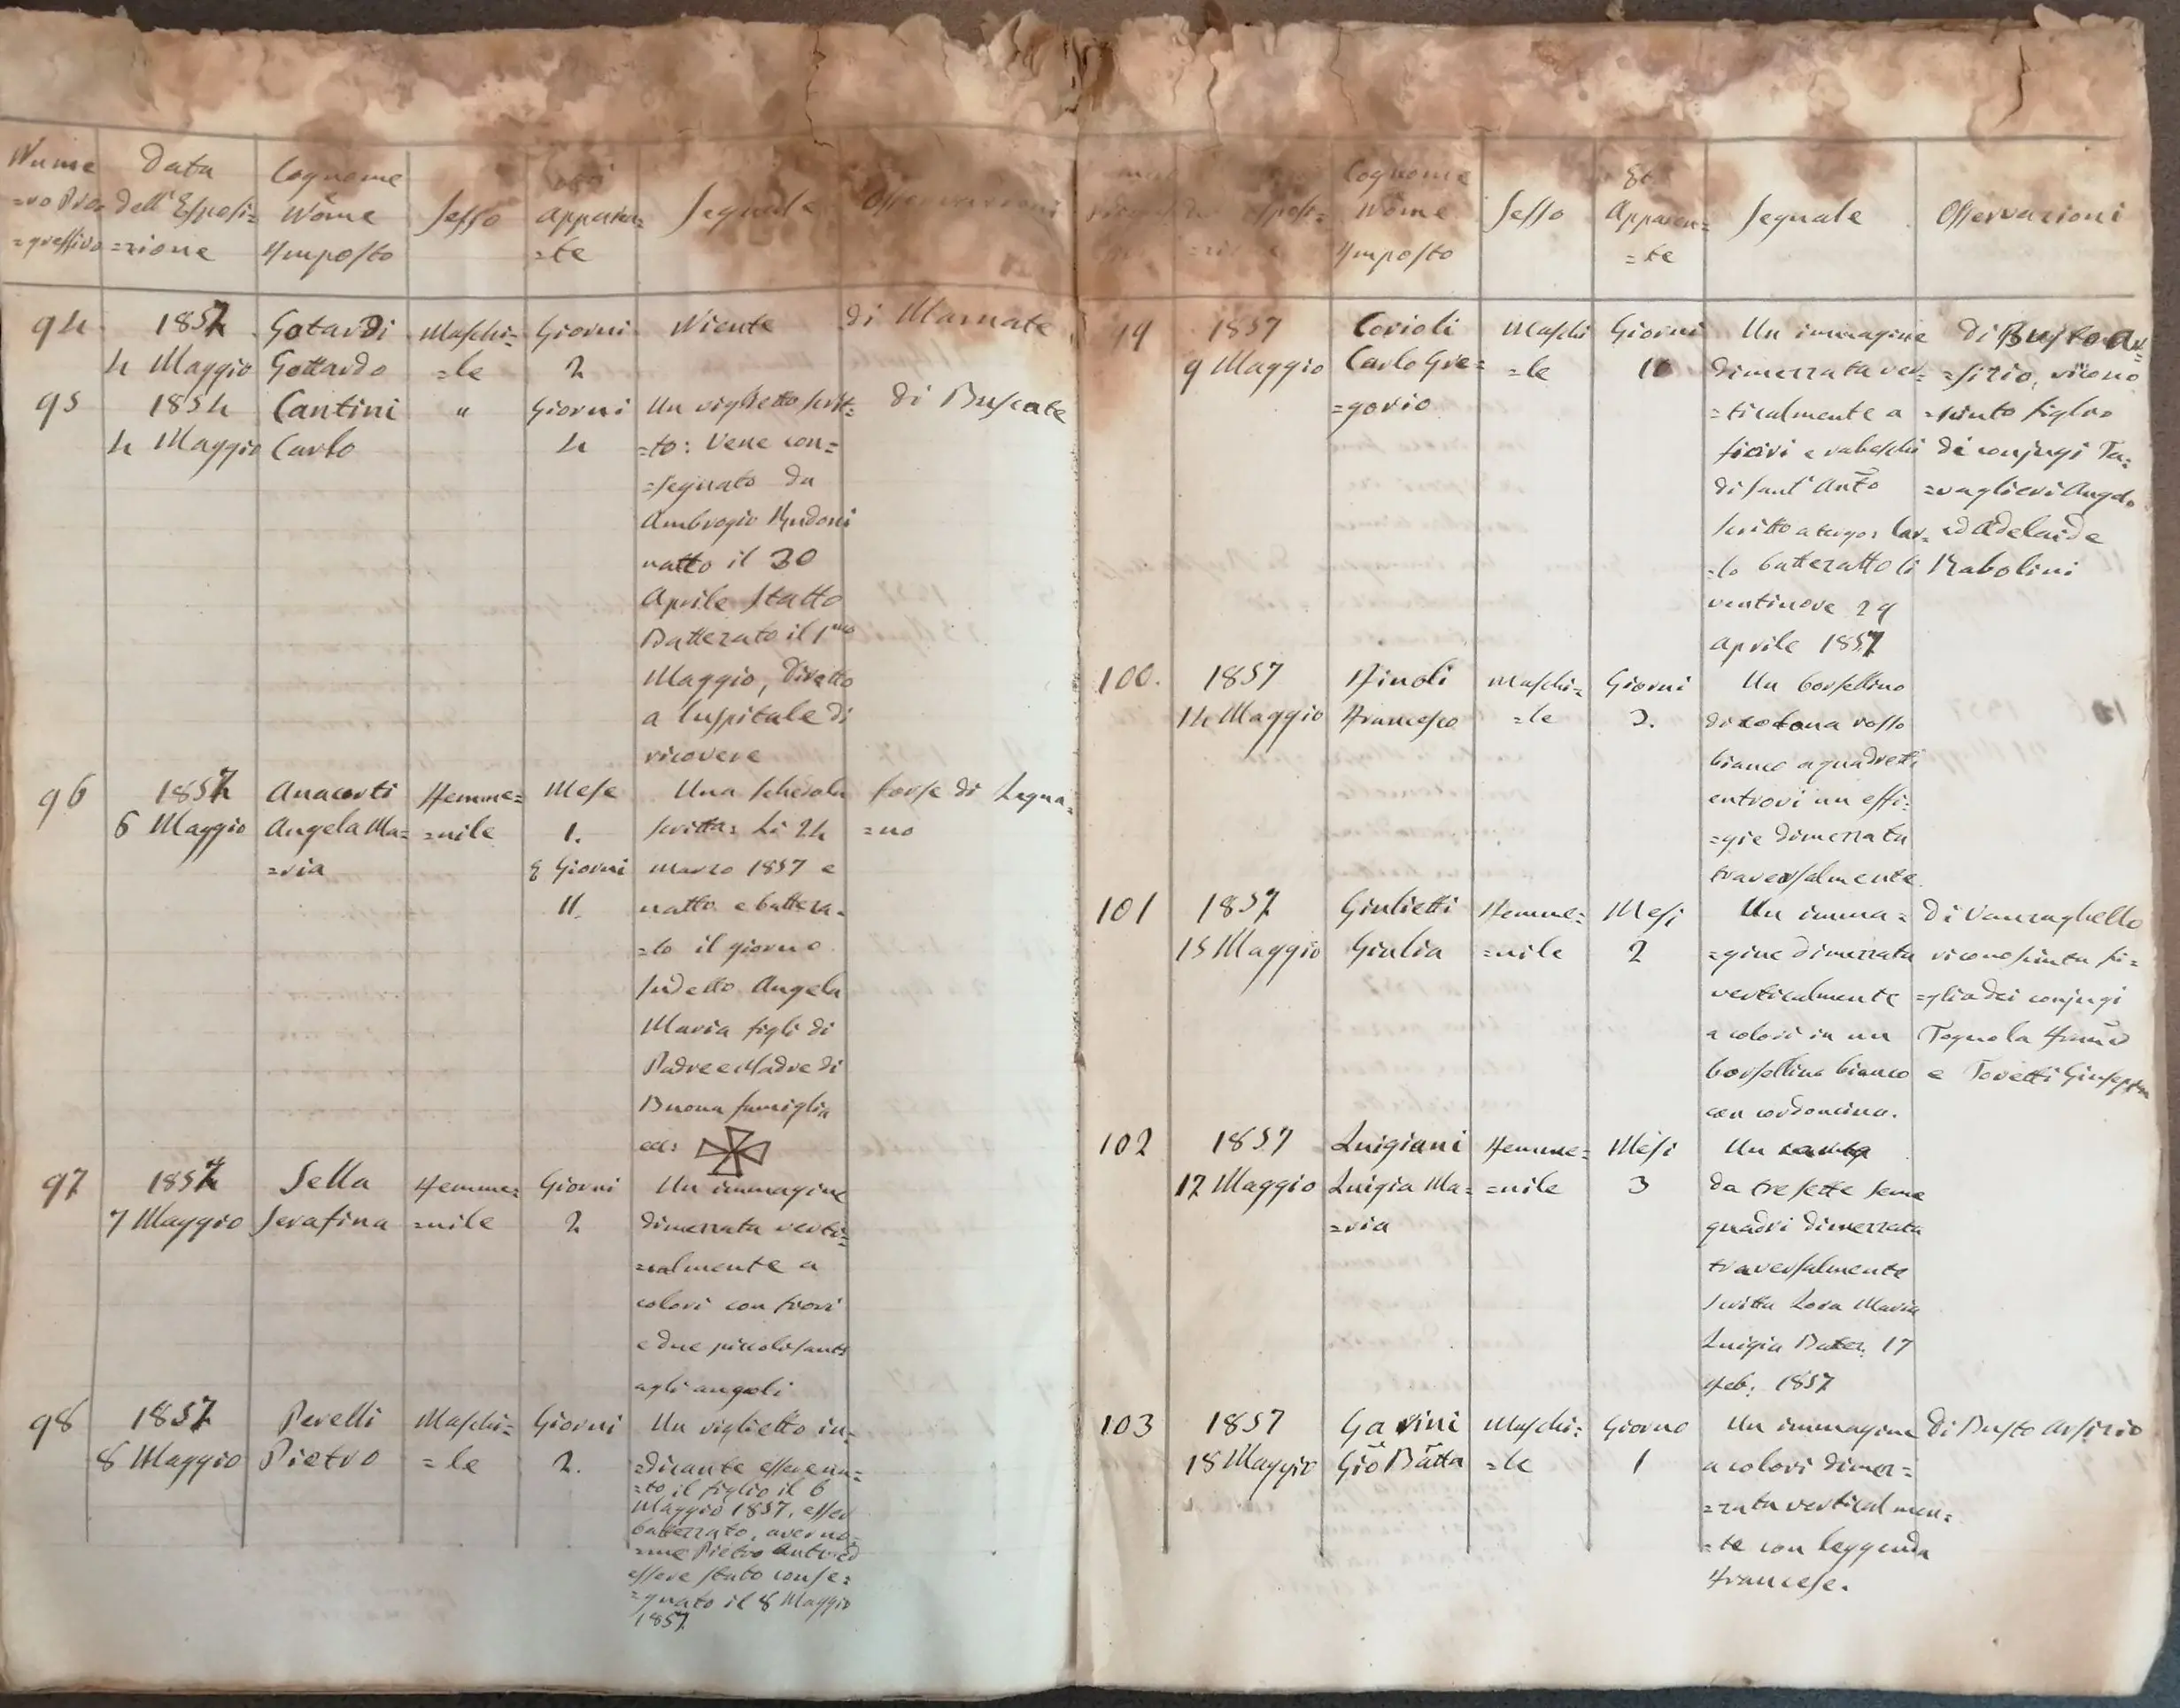 Nume
=ro Pro=
=gressivo
Data
dell'Esposi=
=zione
Cognome
Nome
Imposto
Sesso
Apparen=
=te
Segnale
Osservazioni
94
1857
4 Maggio
Gotardi
Gottardo
Maschi=
=le
Giorni
2
Niente
di Marnate
95
1854
4 Maggio
Cantini
Carlo
"
Giorni
4
Un viglietto scrit=
=to: Vene con=
=segnato da
Ambrogio Rudoni
natto il 30
Aprile statto
Battezato il 1mo
Maggio, Diretto
a luspitale di
ricovere
di Buscate
96
1857
6 Maggio
Anacorti
Angela Ma=
=ria
Femme=
=nile
Mese
1.
e Giorni
11.
Una schedola
scritta: Li 24
marzo 1857 e
natto e batteza=
=to il giorno
sudetto Angela
Maria figli di
Padre e Madre di
Buona famiglia
ec:
forse di Legna=
=no
97
1857
7 Maggio
Sella
Serafina
Femme=
=nile
Giorni
2
Un immagine
dimezzata verti=
=calmente a
colori con fiori
e due piccoli santi
agli angoli
98
1857
8 Maggio
Perelli
Pietro
Maschi=
=le
Giorni
2.
Un viglietto in=
=dicante essere na=
=to il figlio il 6
Maggio 1857, esser
battezzato, aver no=
=me Pietro Ant: ed
essere stato conse=
=gnato il 8 Maggio
1857
Cognome
Nome
Imposto
Sesso
Età
Apparen=
=te
Segnale
Osservazioni
99
1857
9 Maggio
Corioli
Carlo Gre=
=gorio
Maschi
=le
Giorni
10
Un immagine
dimezzata ver=
=ticalmente a
fiorivi e rabeschi
di Sant'Anto
scritto a tergo: Car=
=lo battezatto li
ventinove 29
Aprile 1857
di Busto Ar=
=sizio, ricono
=sciuto figlio
di conjugi Ta=
=vaglieri Angelo
ed Adelaide
Rabolini
100.
1857
14 Maggio
Pinoli
Francesco
Maschi=
=le
Giorni
3.
Un borsellino
di cotona rosso
bianco a quadretti
entrovi un effi=
=gie dimezzata
traversalmente
101
1857
15 Maggio
Giulietti
Giulia
Femme=
=nile
Mesi
2
Un imma=
=gine dimezzata
verticalmente
a colori in un
borsellino bianco
con cordoncino.
di Vanzaghello
riconosciuta fi=
=glia dei conjugi
Tognola Franco
e Toretti Giuseppa
102
1857
17 Maggio
Luigiani
Luigia Ma=
=ria
Femme=
=nile
Mesi
3
Un carta
da tresette seme
quadri dimezzata
traversalmente
scritta Lora Maria
Luigia Batez: 17
Feb: 1857
103
1857
18 Maggio
Gavini
Gio Batta
Maschi=
=le
Giorno
1
Un immagine
a colori dimez=
=zata vertical men=
=te con leggenda
francese.
di Busto Arsizio